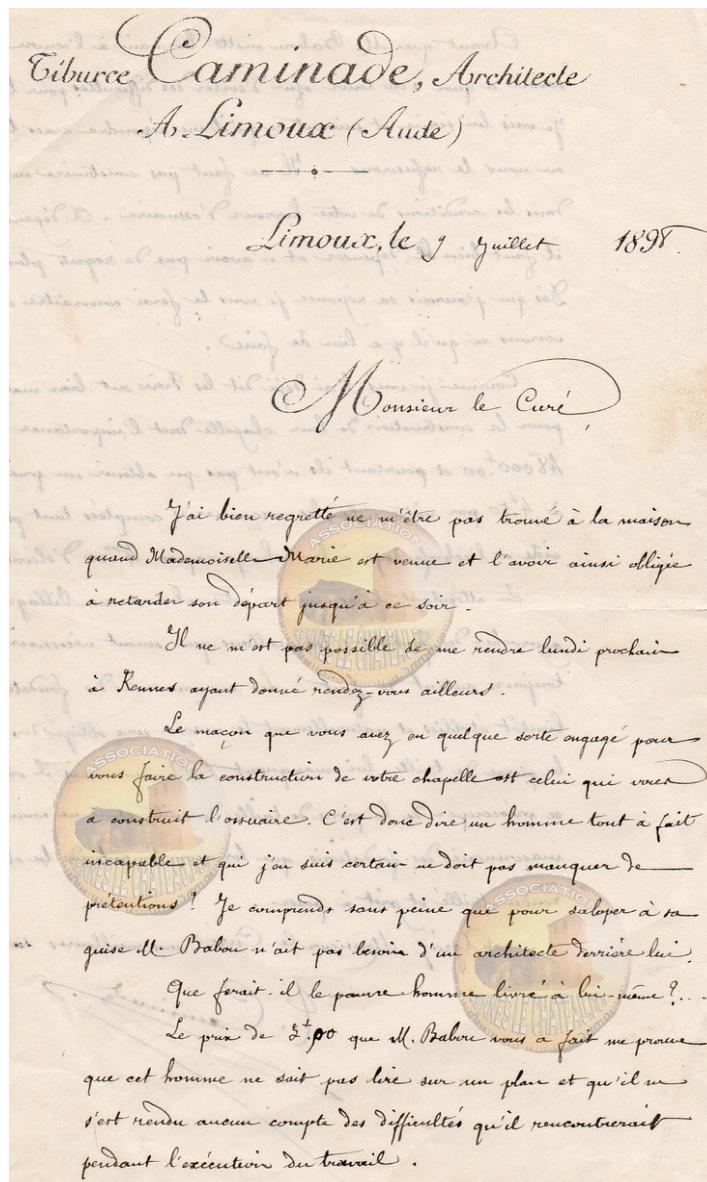 Tiburce Caminade, Architecte
A Limoux (Aude)
Limoux, le 9 Juillet 1898.
Monsieur le Curé,
J'ai bien regretté ne m'être pas trouvé à la maison
quand Mademoiselle Marie est venue et l'avoir ainsi obligée
à retarder son départ jusqu'à ce soir.
Il ne m'est pas possible de me rendre lundi prochain
à Rennes ayant donné rendez-vous ailleurs.
Le maçon que vous avez en quelque sorte engagé pour
vous faire la construction de votre chapelle est celui qui vous
a construit l'ossuaire. C'est donc dire un homme tout à fait
incapable et qui j'en suis certain ne doit pas manquer de
prétentions! Je comprends sans peine que pour saloper à sa
guise M. Babou n'ait pas besoin d'un architecte derrière lui.
Que ferait-il le pauvre homme livré à lui-même?...
Le prix de que M. Babou vous a fait me prouve
que cet homme ne sait pas lire sur un plan et qu'il ne
s'est rendu aucun compte des difficultés qu'il rencontrerait
pendant l'exécution du travail.
ASSOCIATION
RENNES LE CHATEAU
ASSOCIATION
RENNES LE CHATEAU
ASSOCIATION
RENNES LE CHATEAU